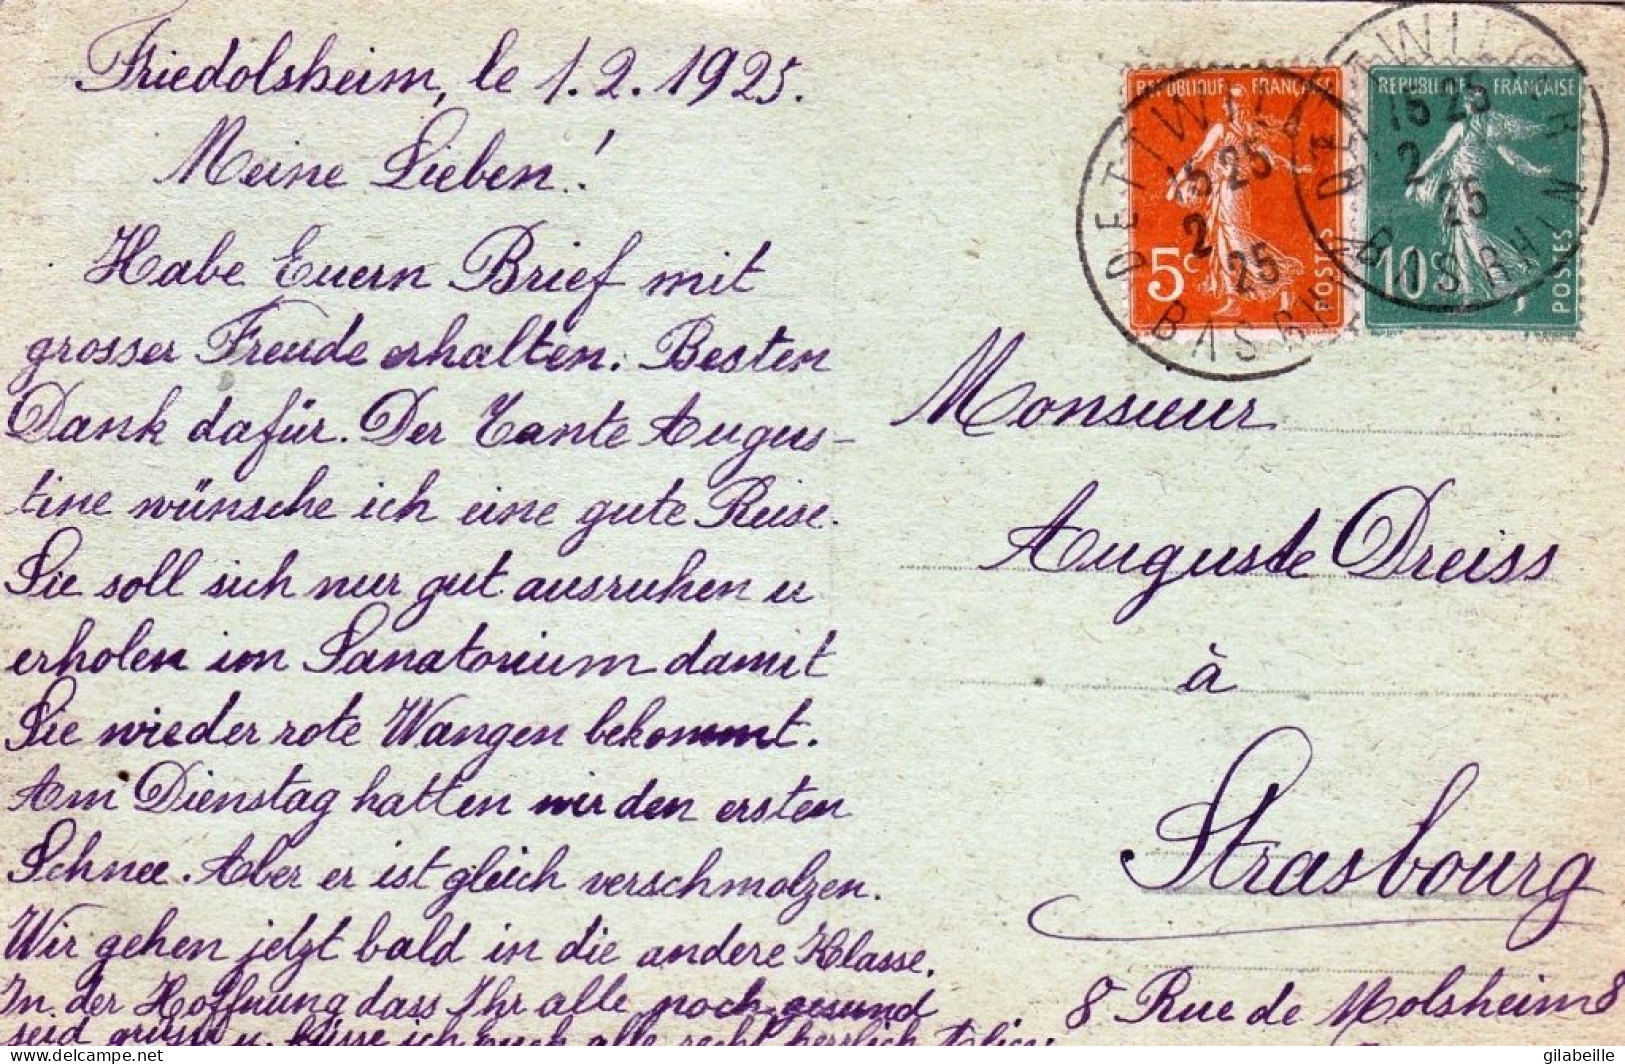 Friedolsheim, le 1.2.1925.
Meine Lieben!
Habe Euern Brief mit
grosser Freude erhalten. Besten
Dank dafür. Der Tante Augus-
tine wünsche ich eine gute Reise.
Sie soll sich nur gut ausruhen u
erholen im Sanatorium damit
Sie wieder rote Wangen bekommt.
Am Dienstag hatten wir den ersten
Schnee. Aber er ist gleich verschmolzen.
Wir gehen jetzt bald in die andere Klasse.
In der Hoffnung dass Ihr alle noch gesund
seid grüsse u. küsse ich euch alle recht herzlich
REPUBLIQUE FRANÇAISE
5c
POSTES
REPUBLIQUE FRANÇAISE
10c
POSTES
DETTWILLER
15 25
2
25
BAS RHIN
DETTWILLER
15 25
2
25
BAS RHIN
Monsieur
Auguste Dreiss
à
Strasbourg
8 Rue de Molsheim 8
gilabeille